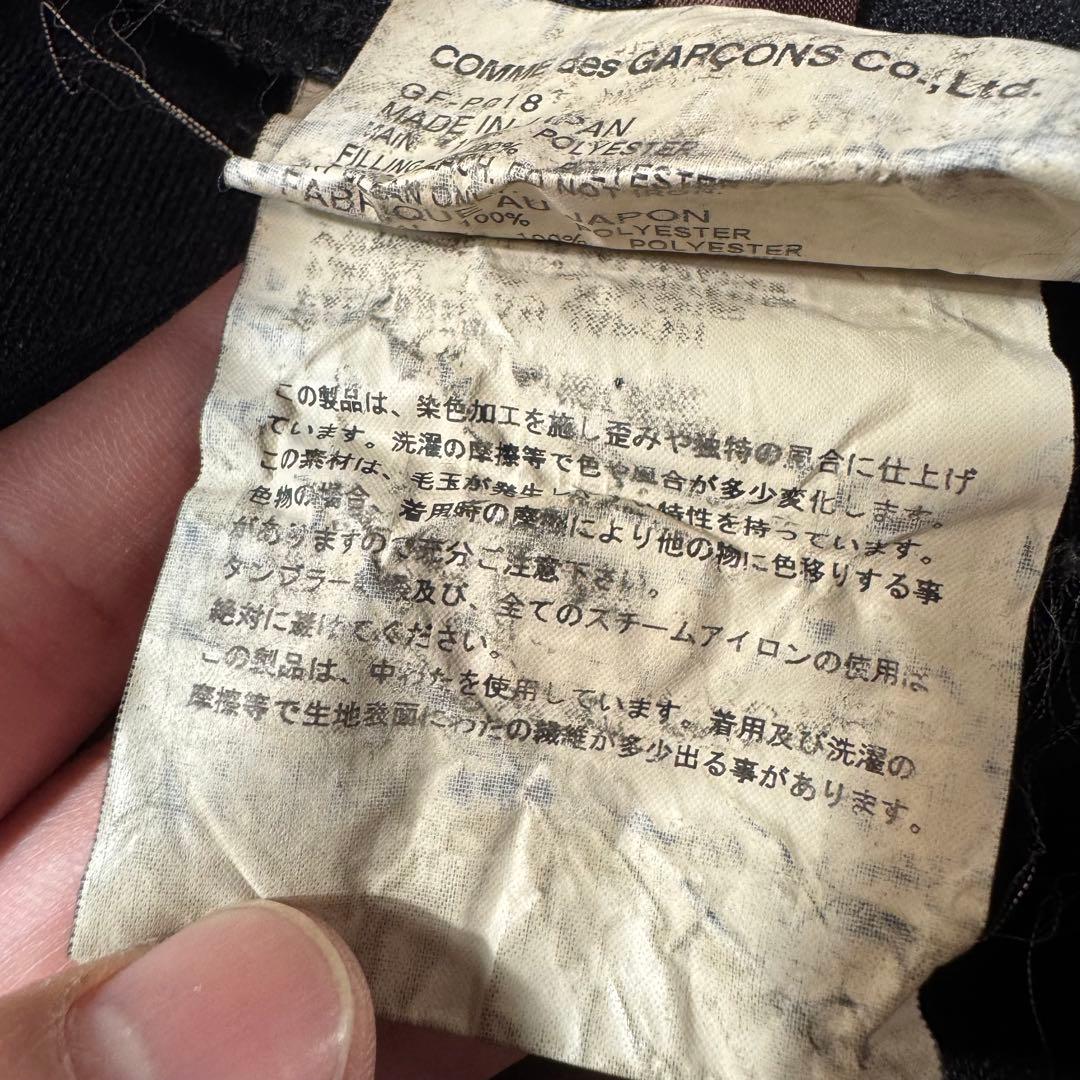 COMME des GARÇONS Co., Ltd.
GF-P018
MADE IN JAPAN
MAIN 100% POLYESTER
FILLING
FABRIQUE AU JAPON
100% POLYESTER
100% POLYESTER
この製品は、染色加工を施し歪みや独特の風合に仕上げ
ています。洗濯の摩擦等で色や風合が多少変化します。
この素材は、毛玉が発生し特性を持っています。
色物の場合、着用時の摩擦により他の物に色移りする事
がありますので充分ご注意下さい。
タンブラー及び、全てのスチームアイロンの使用は
絶対に避けてください。
この製品は、中わたを使用しています。着用及び洗濯の
摩擦等で生地表面にわたの繊維が多少出る事があります。